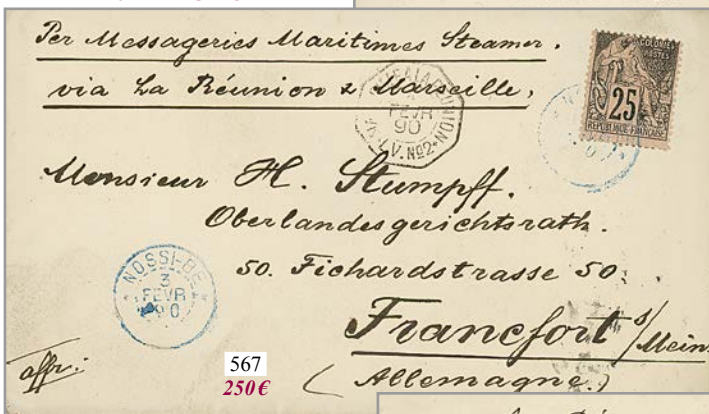 Per Messageries Maritimes Steamer.
via La Réunion & Marseille,
COLONIES
POSTES
25
REPUBLIQUE FRANCAISE
FEVR
90
L.V. Nº2
Monsieur H. Stumpff.
Oberlandesgerichtsrath.
50. Fichardstrasse 50.
Francfort s/Mein
(Allemagne.)
NOSSI-BE
3
FEVR
90
affr:
567
250€